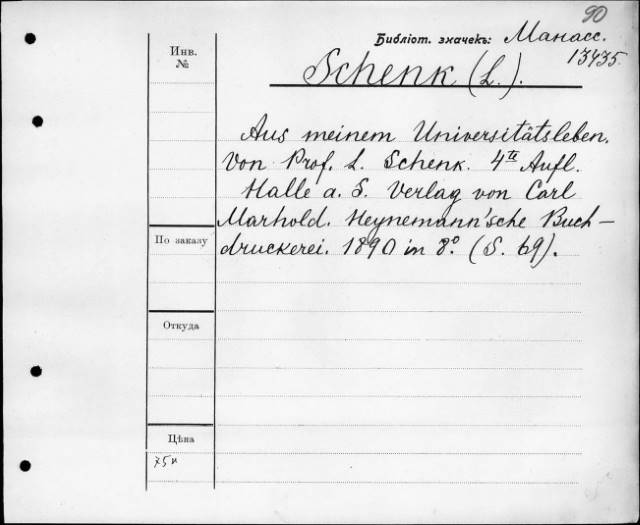 90
Библіот. значекъ: Манасс.
13435.
Инв.
№
Schenk (L.).
Aus meinem Universitätsleben.
Von Prof. L. Schenk. 4te Aufl.
Halle a. S. Verlag von Carl
Marhold. Heynemann'sche Buch-
druckerei. 1890 in 8º. (S. 69).
По заказу
Откуда
Цѣна
75к